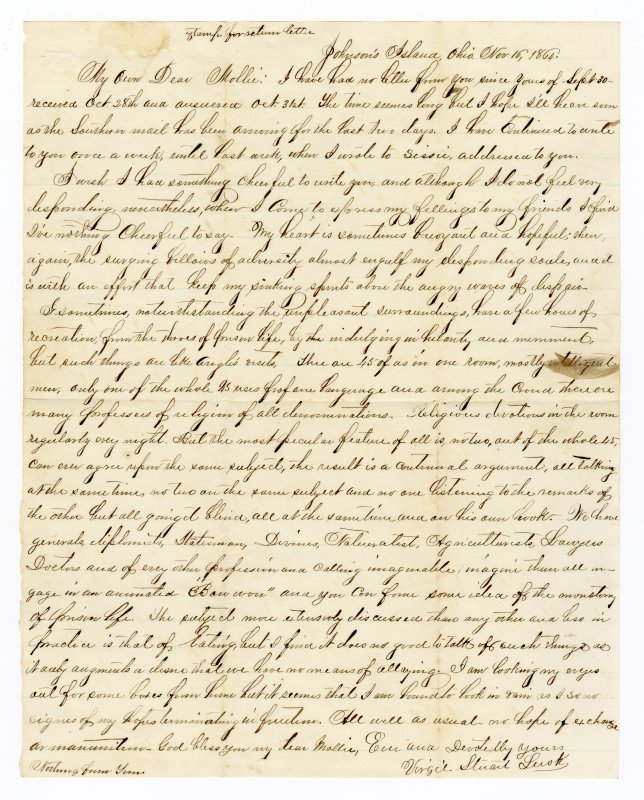 stamp for return letter
Johnson's Island, Ohio Nov 15, 186
My Own Dear Mollie: I have had no letter from you since yours of Sept 20
received Oct 28th and answered Oct 31st. The time seems long but I hope I'll hear soon
as the Southern mail has been arriving for the last two days. I have continued to write
to you once a week, until last week, when I wrote to Lissie, addressed to you.
I wish I had something Cheerful to write you, and although I do not feel very
desponding, nevertheless, when I Come to express my feelings to my friends I find
I've nothing Cheerful to say. My heart is sometimes buoyant and hopeful; then,
again, the surging billows of adversity almost engulf my desponding soul, and
is with an effort that keep my sinking spirits above the angry waves of despair.
I sometimes, notwithstanding the unpleasant surroundings, have a few hours of
recreation, from the of prison life, by indulging in hilarity and merriment,
but such things are like angels visits. There are 45 of us in one room, mostly intelligent
men, only one of the whole 45 uses profane language and among the Crowd there are
many professors of religion of all denominations. Religious devotions in the room
regularly every night. But the most peculiar feature of all is, no two, out of the whole 45,
can ever agree upon the same subject, the result is a continual argument, all talking
at the same time, no two on the same subject and no one listening to the remarks of
the other but all going it blind, all at the same time and on his own hook. We have
generals, diplomats, Statesman, Divines, Naturalist, Agriculturists, Lawyers
Doctors and of every other profession and calling imaginable, imagine them all en-
gage in an animated "Bow wow" and you can form some idea of the monotony
of prison life. The subject more extensively discussed than any other and less in
practice is that of Eating, but I find it does no good to talk of such things as
it only augments a desire that we have no means of allaying. I am looking my eyes
out for some boxes from home but it seems that I am bound to look in vain as I see no
signes of my hopes terminating in fruition. All well as usual - no hope of exchange
or manumition. God bless you my dear Mollie, Ever and Devotedly yours
Nothing from Tom Virgil Stuart Lusk